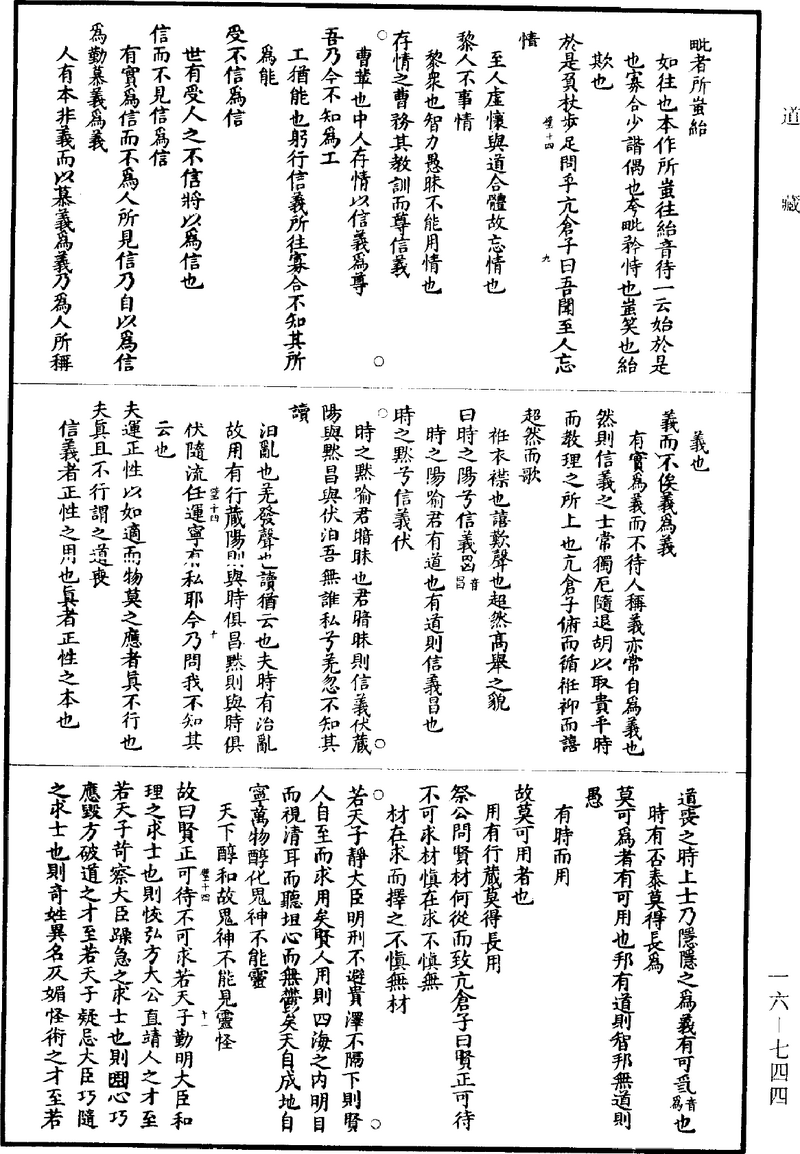 道藏
毗者所蚩紿
如往也本作所蚩往紿音待一云始於是
也寡合少諧偶也夸毗矜恃也蚩笑也紿
欺也
於是負杖步足問乎亢倉子曰吾聞至人忘
情
至人虛懷與道合體故忘情也
黎人不事情
黎衆也智力愚昧不能用情也
存情之曹務其教訓而尊信義
曹輩也中人存情以信義爲尊
吾乃今不知爲工
工猶能也躬行信義所往寡合不知其所
爲能
受不信爲信
世有受人之不信將以爲信也
信而不見信爲信
有實爲信而不爲人所見信乃自以爲信
爲勤慕義爲義
人有本非義而以慕義爲義乃爲人所稱
義也
義而不俟義爲義
有實爲義而不待人稱義亦常自爲義也
然則信義之士常獨厄隨退胡以取貴乎時
而教理之所上也亢倉子俯而循袵仰而譆
超然而歌
袵衣襟也譆歎聲也超然高舉之貌
曰時之陽兮信義昌音昌
時之陽喻君有道也有道則信義昌也
時之黙兮信義伏
時之黙喻君暗昧也君暗昧則信義伏藏
陽與黙昌與伏汩吾無誰私兮羌忽不知其
讀
汩亂也羌發聲也讀猶云也夫時有治亂
故用有行藏陽則與時俱昌黙則與時俱
伏隨流任運寧有私耶今乃問我不知其
云也
夫運正性以如適而物莫之應者眞不行也
夫眞且不行謂之道喪
信義者正性之用也眞者正性之本也
道喪之時上士乃隱隱之爲義有可爲音爲也
時有否泰莫得長爲
莫可爲者有可用也邦有道則智邦無道則
愚
有時而用
故莫可用者也
用有行藏莫得長用
祭公問賢材何從而致亢倉子曰賢正可待
不可求材愼在求不愼無
材在求而擇之不愼無材
若天子靜大臣明刑不避貴澤不隔下則賢
人自至而求用矣賢人用則四海之內明目
而視清耳而聽坦心而無鬱矣天自成地自
寧萬物醇化鬼神不能靈
天下醇和故鬼神不能見靈怪
故曰賢正可待不可求若天子勤明大臣和
理之求士也則恢弘方大公直靖人之才至
若天子苛察大臣躁急之求士也則圝心巧
應毀方破道之才至若天子疑忌大臣巧隨
之求士也則奇姓異名仄媚怪術之才至若
壁十四 九
壁十四 十
壁十四 十一
一六－七四四